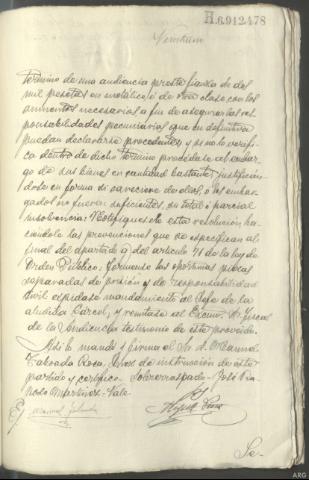 H.6912478
término de una audiencia preste fianza de dos
mil pesetas en metálico, ó de otra clase con los
aumentos necesarios a fin de asegurar las res-
ponsabilidades pecuniarias que en definitiva
puedan declararse procedentes y si no lo verifi-
ca dentro de dicho término procédase al embar-
go de sus bienes en cantidad bastante, justificán-
dose en forma si careciere de ellos, o los embar-
gados no fueren suficientes, su total ó parcial
insolvencia: Notifíquesele esta resolución ha-
ciéndole las prevenciones que se especifican al
final del apartado a) del artículo 71 de la ley de
Orden Público; fórmense las oportunas piezas
separadas de prisión y de responsabilidad
civil expídase mandamiento al Jefe de la
aludida Cárcel, y remítase al Excmo. Sr. Fiscal
de la Audiencia testimonio de este proveído.
Así lo mandó y firma el Sr. D. Manuel
Taboada Roca, Juez de instrucción de este
partido y certifico. Sobrerraspado = José
Martínez = Vale
Se-
ARG